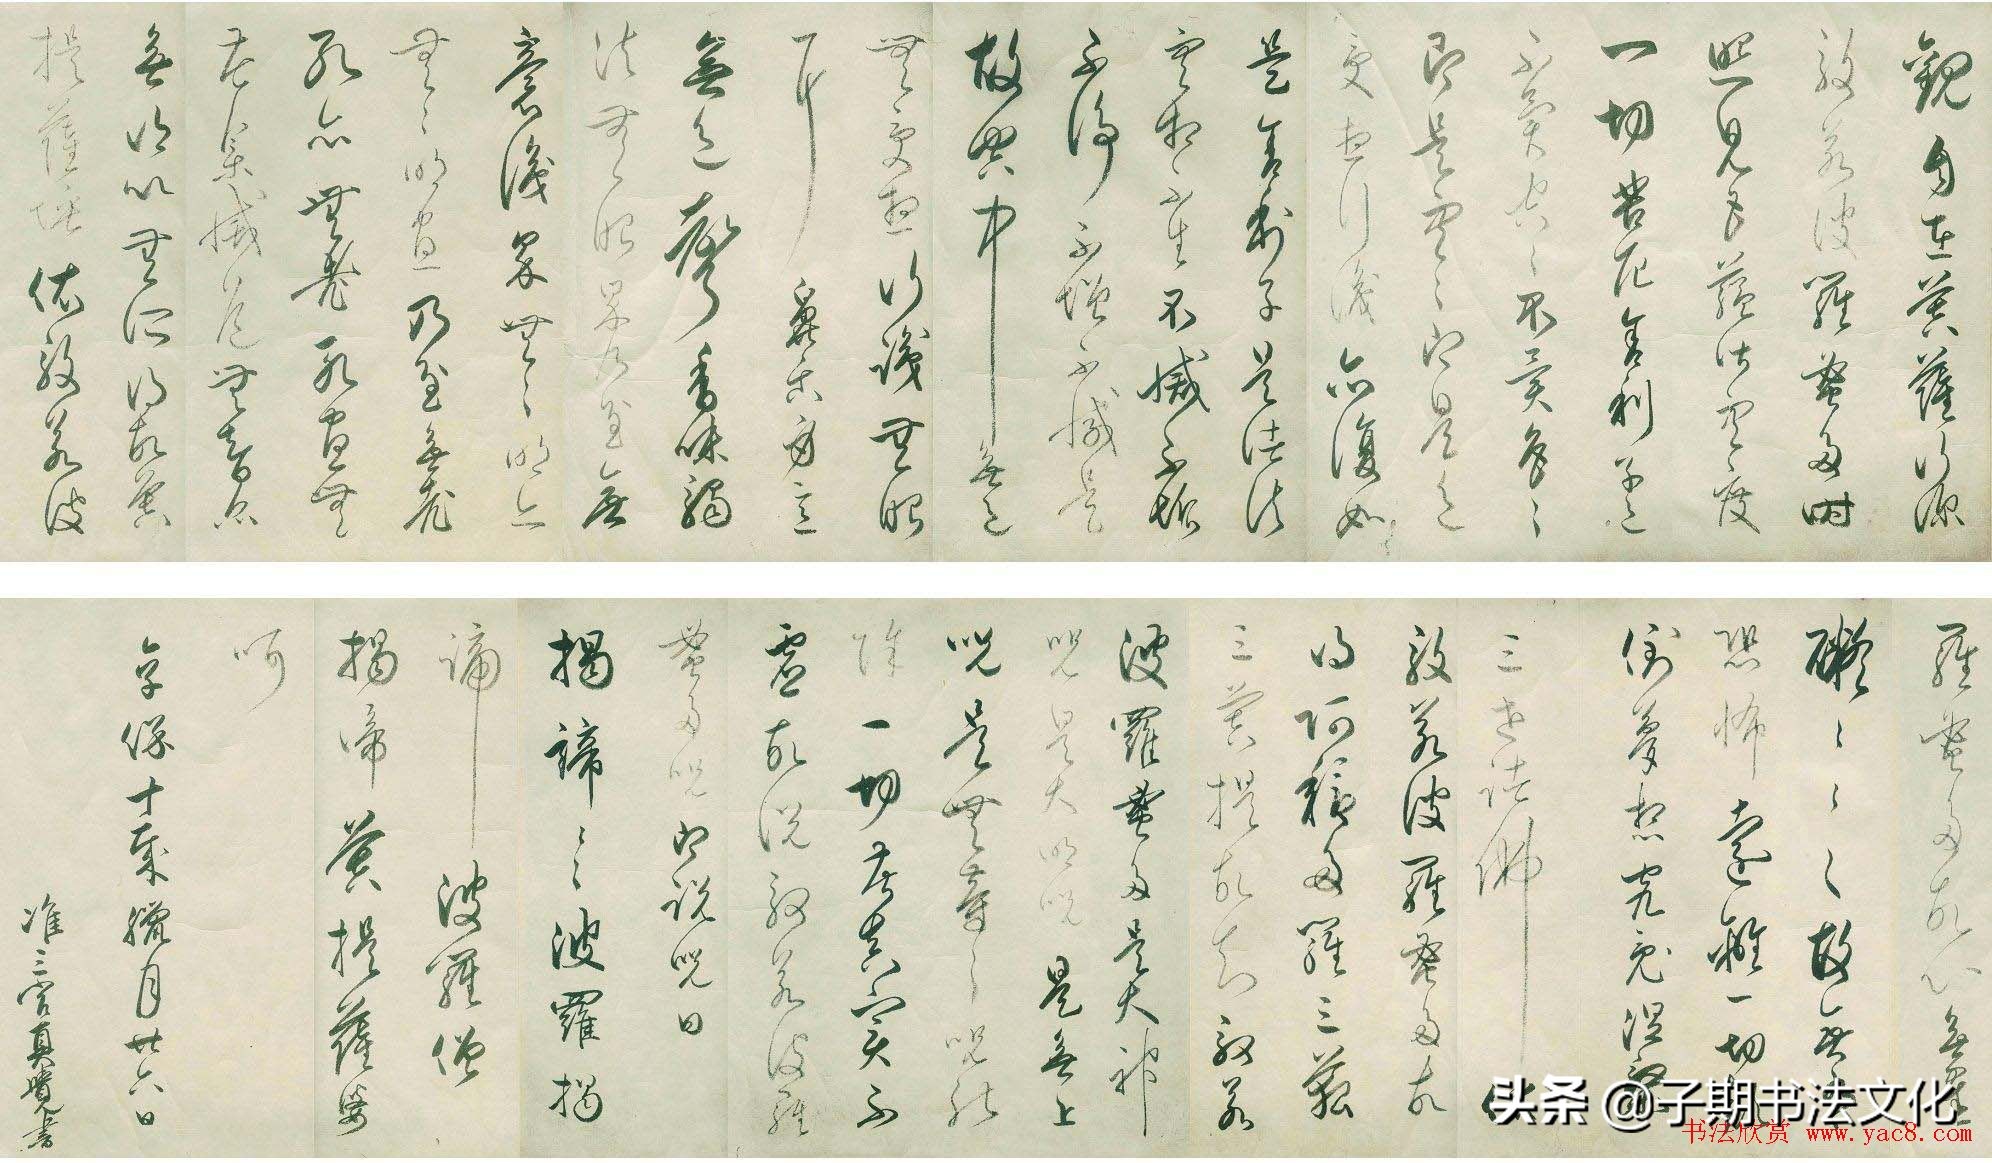 觀自在菩薩行深
般若波羅蜜多時
照見五蘊皆空度
一切苦厄舍利子色
不異空〻不異色〻
即是空〻即是色
受想行識亦復如
是舍利子是諸法
空相不生不滅不垢
不淨不增不減是
故空中無色
無受想行識無眼
耳鼻舌身意
無色聲香味觸
法無眼界乃至無
意識界無〻明亦
無〻明盡乃至無老
死亦無老死盡無
苦集滅道無智亦
無得以無所得故菩
提薩埵依般若波
羅蜜多故心無罣
礙〻〻〻故無有
恐怖遠離一切顛
倒夢想究竟涅槃
三世諸佛依
般若波羅蜜多故
得阿耨多羅三藐
三菩提故知般若
波羅蜜多是大神
呪是大明呪是無上
呪是無等〻呪能
除一切苦真實不
虛故說般若波羅
蜜多呪即說呪曰
揭諦〻〻波羅揭
諦波羅僧
揭諦菩提薩婆
訶
享保十歲臘月廿六日
准三宮真覺書
头条 @子期书法文化
书法欣赏 www.yac8.com